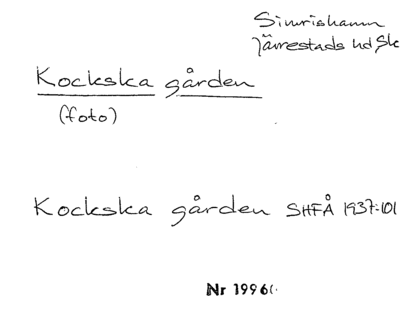 Simrishamn
Järrestads hd Sk
Kockska gården
(foto)
Kockska gården SHFÅ 1937:101
Nr 1996